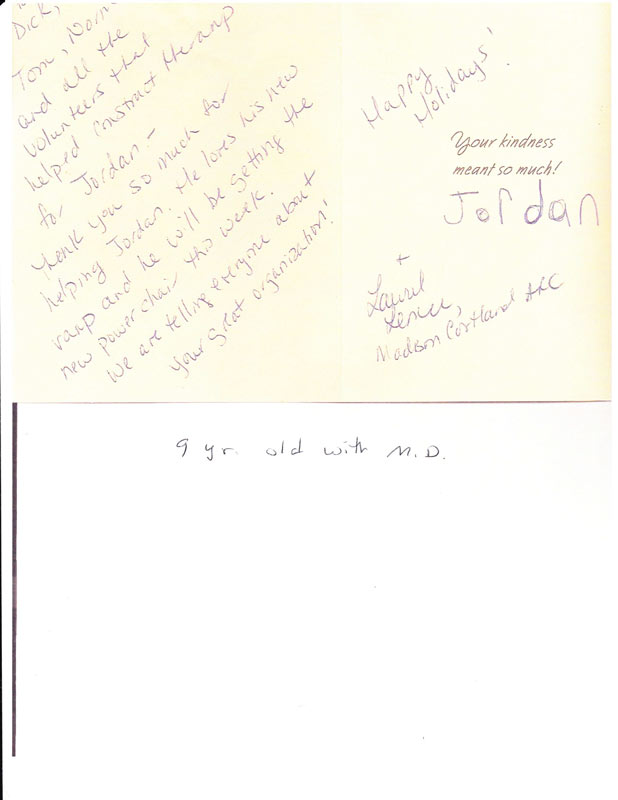 Dick,
Tom, Norm
and all the
volunteers that
helped construct the ramp
for Jordan -
Thank you so much for
helping Jordan. He loves his new
ramp and he will be getting the
new power chair this week.
We are telling everyone about
your great organization!
Happy
Holidays!
Your kindness
meant so much!
Jordan
+
Laurel
Madison Cortland ARC
9 yr. old with M.D.